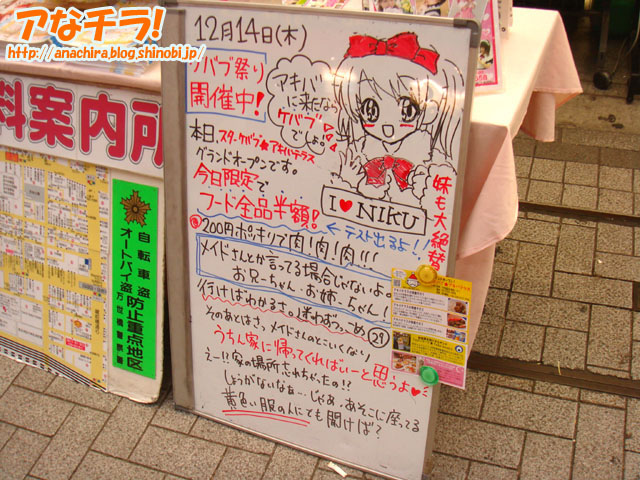 アなチラ!
http://anachira.blog.shinobi.jp/
料案内所
自転車盗
オートバイ盗
防止重点地区
万世橋警察署
12月14日(木)
ケバブ祭り
開催中!
アキバ
に来たなら
ケバブ
でしょ!
本日、スターケバブ★アキバテラス
グランドオープンです。
今日限定で
フード全品半額!
I ♥ NIKU
妹も大絶賛
←テスト出るよ!!
200円ポッキリで肉!肉!肉!!!
メイドさんとか言ってる場合じゃないよ。
お兄ーちゃん・お姉ーちゃん!
行けばわかるさ。迷わずっこめ
そのあとはさっ、メイドさんのとこいくなり
うちん家に帰ってくればいーと思うよ♥
えー!?家の場所忘れちゃったの!!
しょうがないなぁ…じゃぁ、あそこに座ってる
黄色い服の人にでも聞けば?